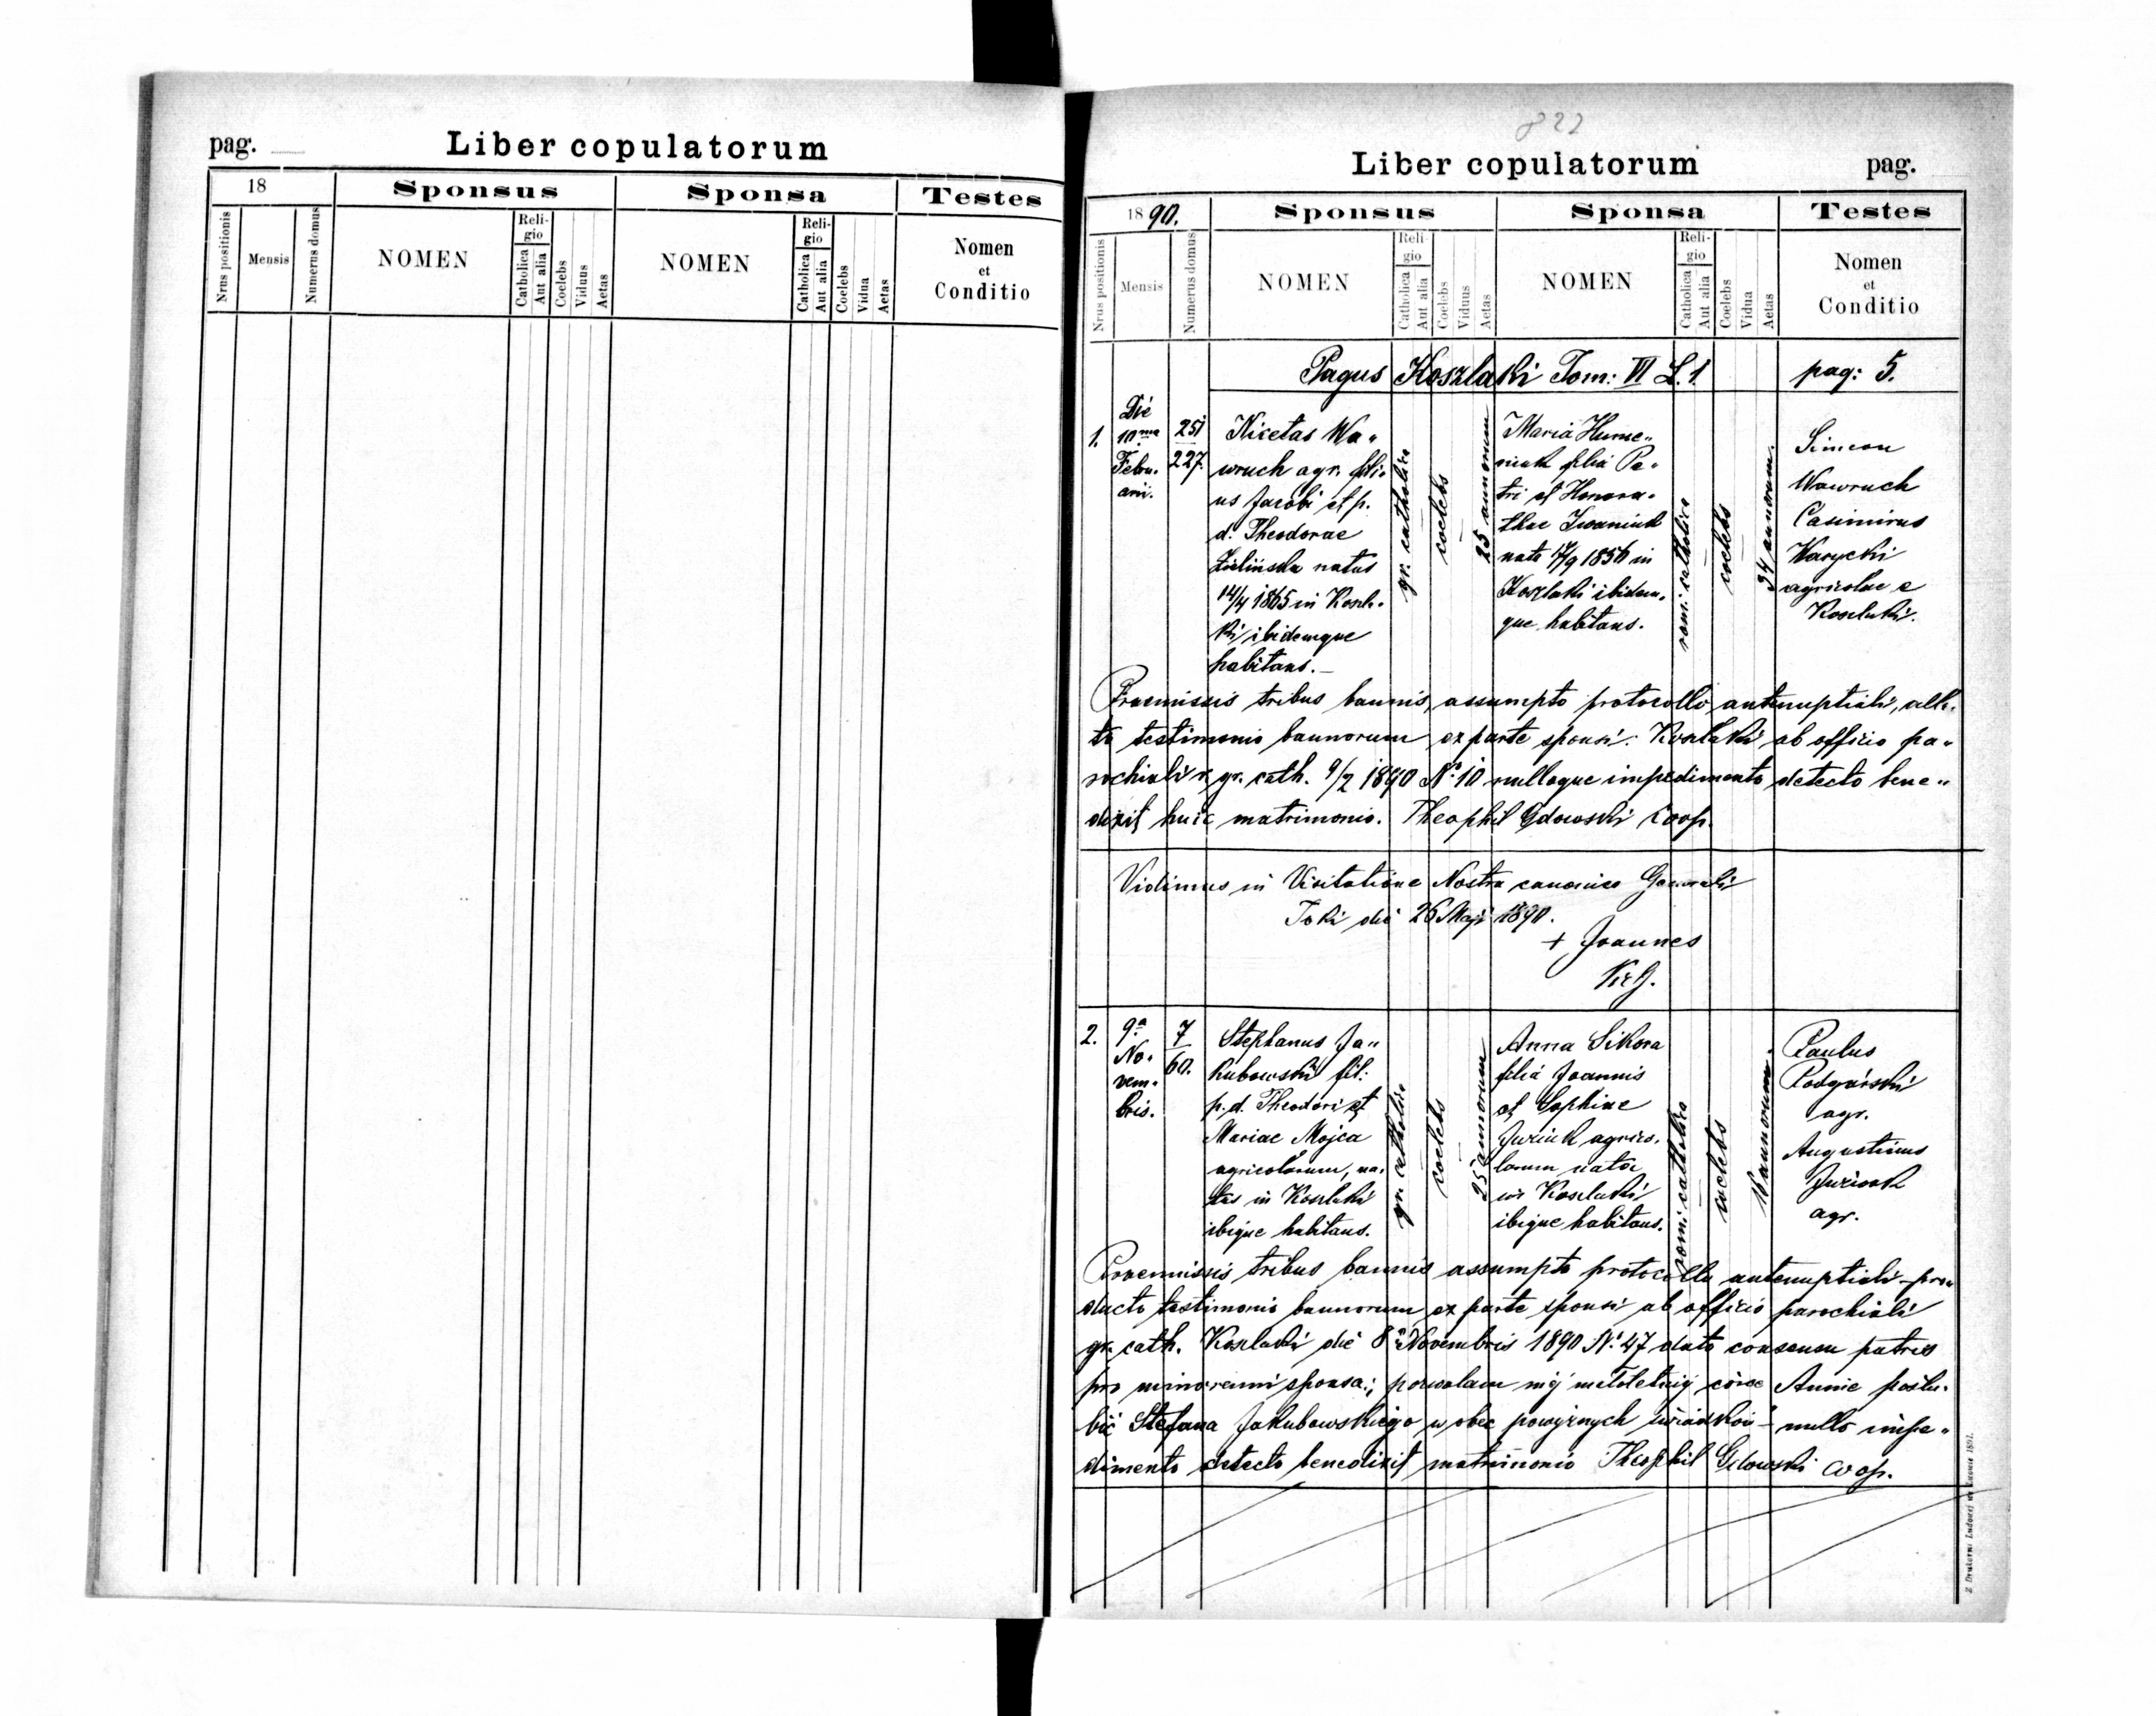 pag.
Liber copulatorum
18
Sponsus
Sponsa
Testes
Nrus positionis
Mensis
Numerus domus
NOMEN
Religio
Catholica
Aut alia
Coelebs
Viduus
Aetas
NOMEN
Religio
Catholica
Aut alia
Coelebs
Vidua
Aetas
Nomen
et
Conditio
822
Liber copulatorum
pag.
1890.
Sponsus
Sponsa
Testes
Nrus positionis
Mensis
Numerus domus
NOMEN
Reli-
gio
Catholica
Aut alia
Coelebs
Viduus
Aetas
NOMEN
Reli-
gio
Catholica
Aut alia
Coelebs
Vidua
Aetas
Nomen
et
Conditio
Pagus Koszlaki Tom: VI L. 1.
pag: 5.
1.
Die
10ma
Febru-
arii.
251
227.
Nicetas Wa"
wruch agr. fili-
us Jacobi et p.
d. Theodorae
Zielińska natus
14/4 1865 in Koszla-
ki ibidemque
habitans.
gr. catholica
coelebs
25 annorum
Maria Hume"
niuk filia Pe"
tri et Honora-
thae Iwaniuk
nata 17/9 1856 in
Koszlaki ibidem-
que habitans.
rom: catholica
coelebs
34 annorum.
Simeon
Wawruch
Casimirus
Karycki
agricolae e
Koszlaki.
Praemissis tribus bannis, assumpto protocollo antenuptiali, alla-
to testimonio bannorum ex parte sponsi: Koszlaki ab officio pa"
rochiali r. gr. cath. 9/2 1890 Nº 10 nulloque impedimento detecto bene"
dixit huic matrimonio. Theophil Gdowski Coop.
Vidimus in Visitatione Nostra canonica Generali
Toki die 26 Maji 1890.
+ Joannes
2.
9a
No-
vem-
bris.
7
60.
Stephanus Ja"
kubowski fil:
p. d. Theodori et
Mariae Mojca
agricolarum, na-
tus in Koszlaki
ibique habitans.
gr. catholica
coelebs
25 annorum
Anna Sikora
filia Joannis
et Sophiae
Juziuk agrico-
larum nata
in Koszlaki
ibique habitans.
rom: catholica
coelebs
annorum.
Paulus
Podgórski
agr.
Augustinus
Juziuk
agr.
Praemissis tribus bannis assumpto protocollo antenuptiali pro"
ducto testimonio bannorum ex parte sponsi ab officio parochiali
gr. cath. Koszlaki die 8a Novembris 1890 Nº 47 dato consensu patris
pro minorenni sponsa: pozwalam mej małoletniej córce Annie poślu-
bić Stefana Jakubowskiego w obec powyższych świadków - nullo impe"
dimento detecto benedixit matrimonio Theophil Gdowski Coop.
Z Drukarni Ludowej we Lwowie 1891.